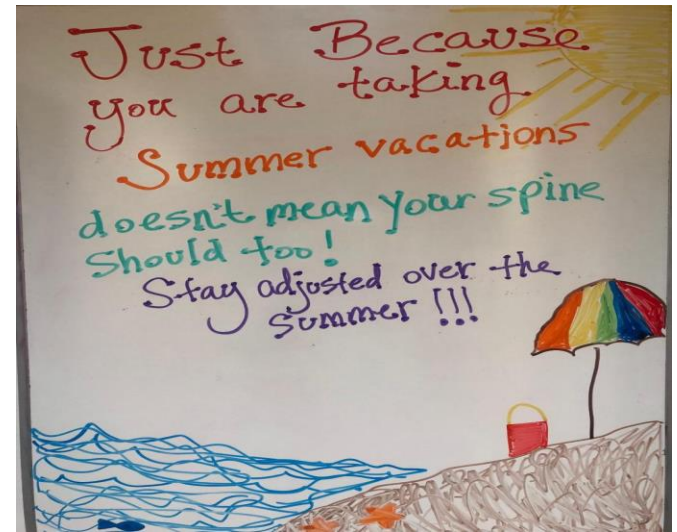 Just Because
you are taking
Summer vacations
doesn't mean your spine
Should too!
Stay adjusted over the
summer !!!